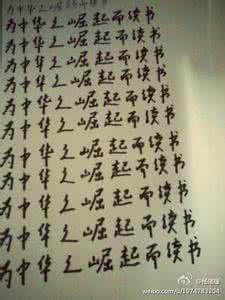 为中华之崛起而读书
为中华之崛起而读书
为中华之崛起而读书
为中华之崛起而读书
为中华之崛起而读书
为中华之崛起而读书
为中华之崛起而读书
为中华之崛起而读书
为中华之崛起而读书
为中华之崛起而读书
为中华之崛起而读书
为中华之崛起而读书
weibo.com/u/1974783204